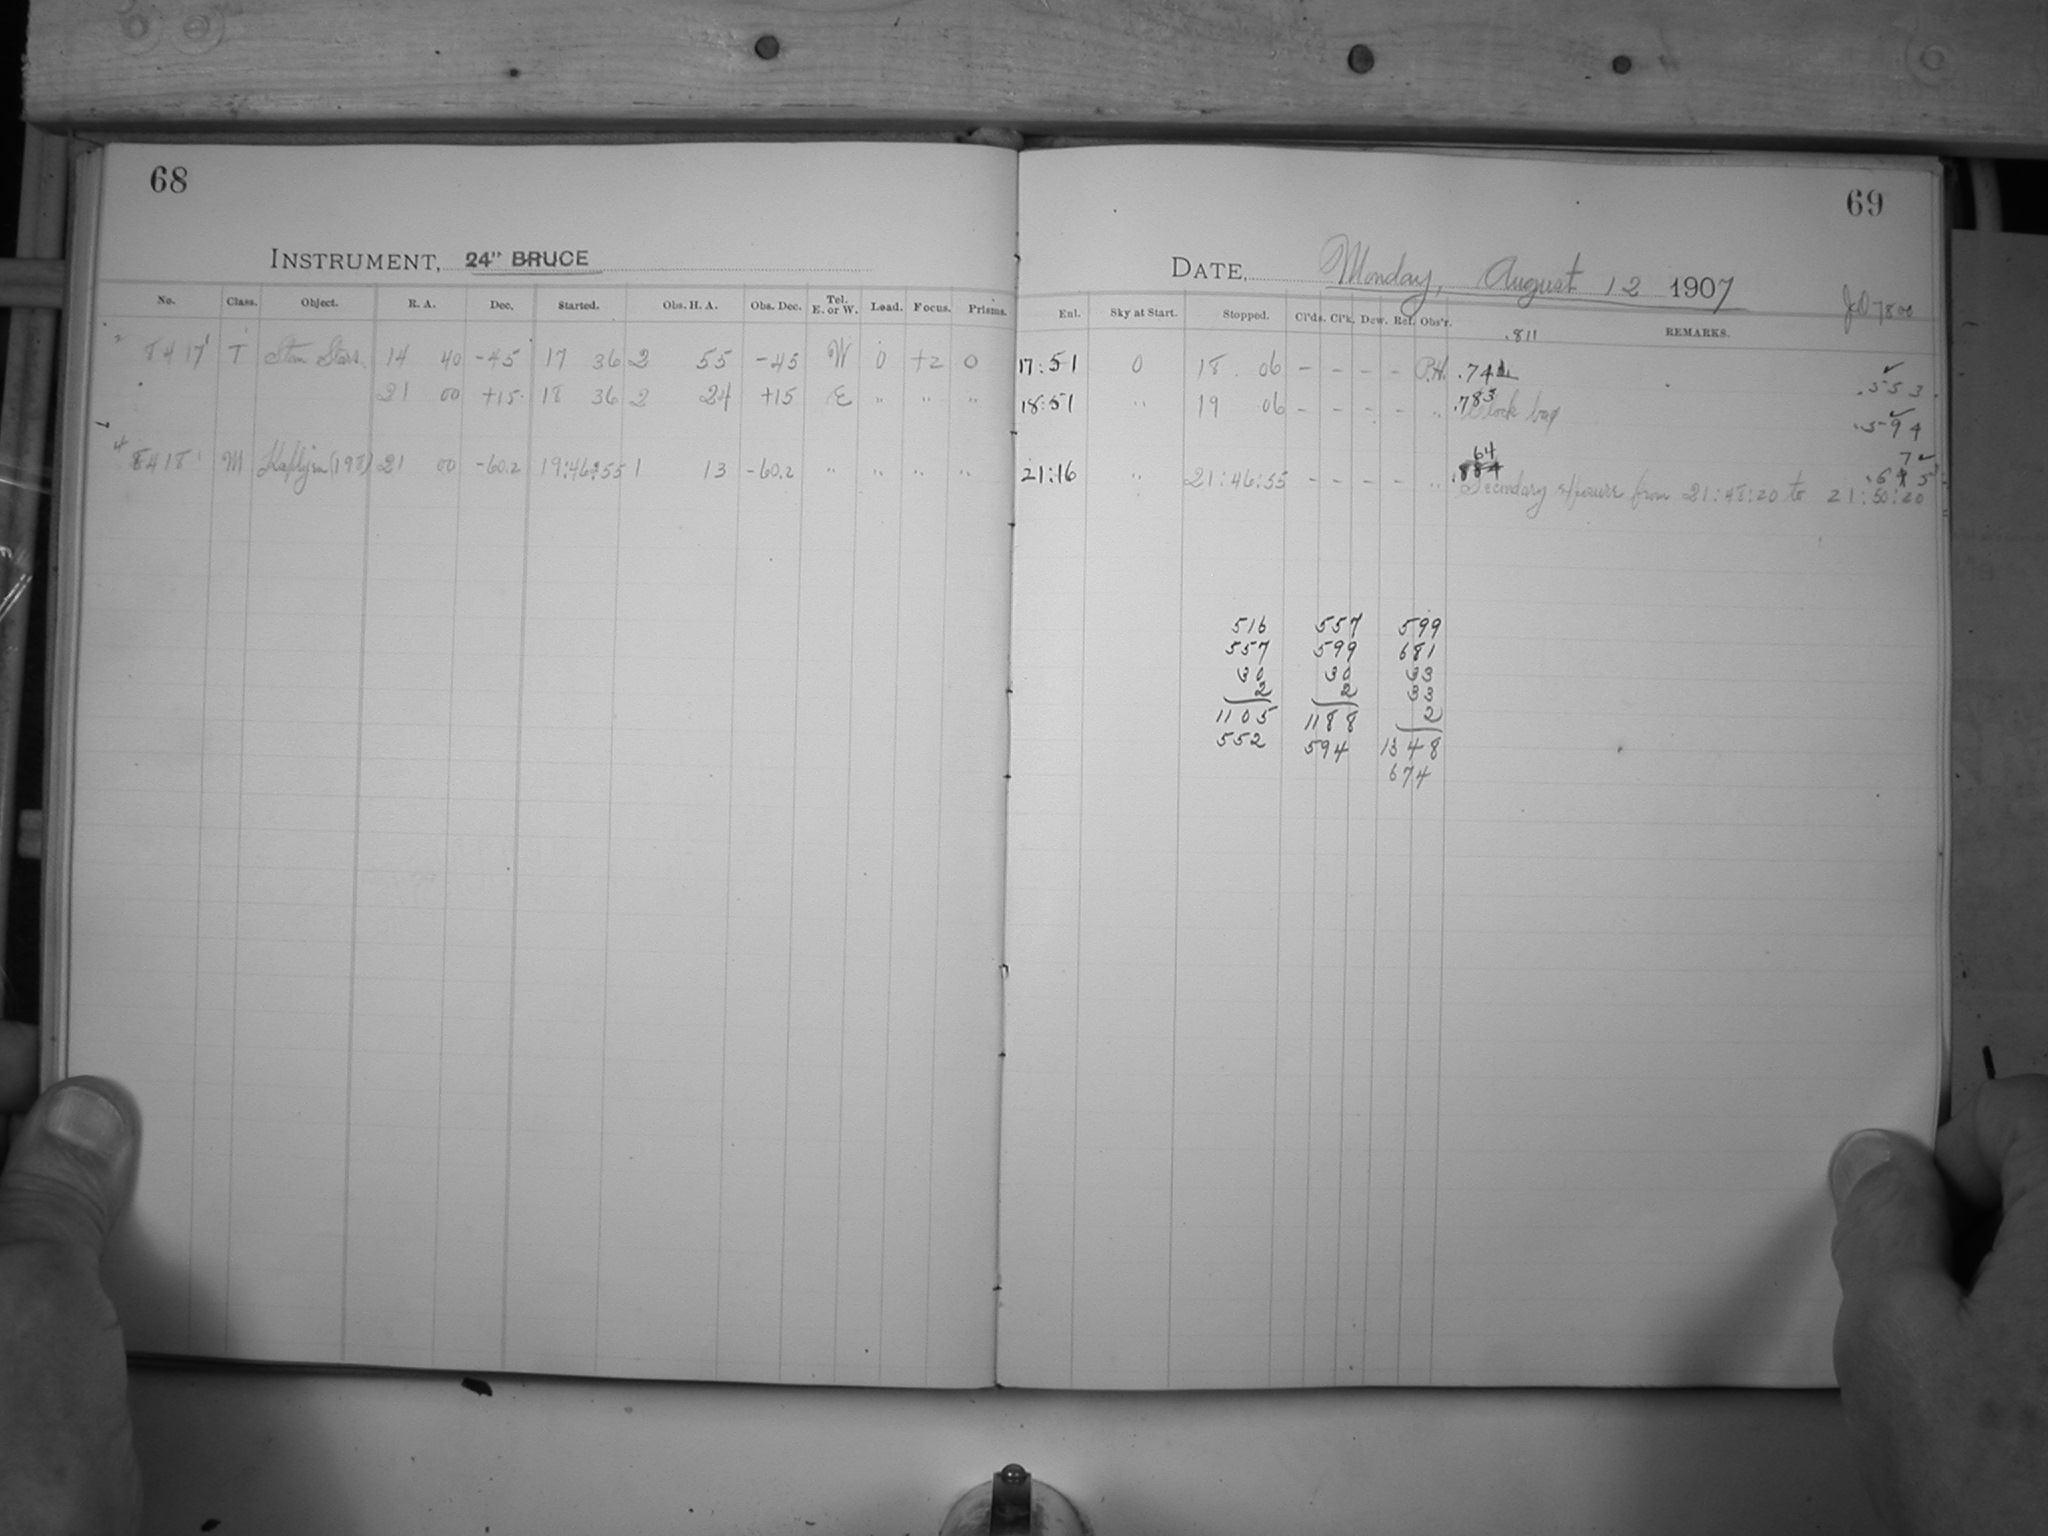 68
INSTRUMENT, 24" BRUCE
No. Class. Object. R. A. Dec. Started. Obs. H. A. Obs. Dec. Tel. E. or W. Load. Focus. Prisms.
8417 T Stars 14 40 -45 17 36 2 55 -45 W 0 +2 0
21 00 +15 18 36 2 24 +15 E " " "
8418 M (198) 21 00 -60.2 19:46:55 1 13 -60.2 " " " "
69
DATE, Monday, August 12 1907
JD 7800
Enl. Sky at Start. Stopped. Cl'ds. Cl'k. Dew. Ref. Obs'r. REMARKS.
.811
17:51 0 18 06 - - - - P.H. .74 .553
18:51 " 19 06 - - - - " .783 Clock bad .594
21:16 " 21:46:55 - - - - " 64
Secondary exposure from 21:48:20 to 21:50:20
516 557 599
557 599 681
30 30 33
2 2 33
1105 1188 2
552 594 1348
674